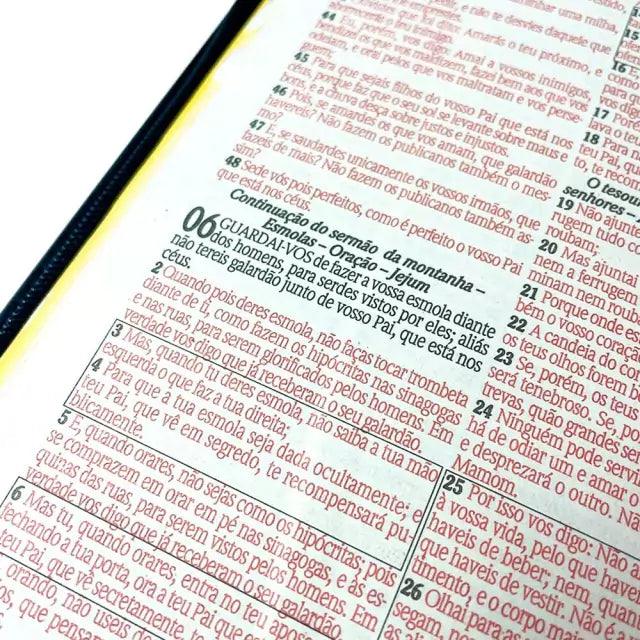 e não te desvies daquele que
44 Eu, porém, vos digo: Amai a vossos inimigos,
bendizei os que vos maldizem, fazei bem aos que vos
odeiam, e orai pelos que vos maltratam e vos perse-
guem;
45 Para que sejais filhos do vosso Pai que está nos
céus, porque faz que o seu sol se levante sobre maus e
bons, e a chuva desça sobre justos e injustos.
46 Pois, se amardes os que vos amam, que galardão
havereis? Não fazem os publicanos também o mes-
mo?
47 E, se saudardes unicamente os vossos irmãos, que
fazeis de mais? Não fazem os publicanos também as-
sim?
48 Sede vós pois perfeitos, como é perfeito o vosso Pai
que está nos céus.
Continuação do sermão da montanha –
Esmolas – Oração – Jejum
06 GUARDAI-VOS de fazer a vossa esmola diante
dos homens, para serdes vistos por eles; aliás
não tereis galardão junto de vosso Pai, que está nos
céus.
2 Quando pois deres esmola, não faças tocar trombeta
diante de ti, como fazem os hipócritas nas sinagogas
e nas ruas, para serem glorificados pelos homens. Em
verdade vos digo que já receberam o seu galardão.
3 Mas, quando tu deres esmola, não saiba a tua mão
esquerda o que faz a tua direita,
4 Para que a tua esmola seja dada ocultamente; e
teu Pai, que vê em segredo, te recompensará pu-
blicamente.
5 E, quando orares, não sejas como os hipócritas; pois
se comprazem em orar em pé nas sinagogas, e às es-
quinas das ruas, para serem vistos pelos homens. Em
verdade vos digo que já receberam o seu galardão.
6 Mas tu, quando orares, entra no teu apos
fechando a tua porta, ora a teu Pai que es
teu Pai, que vê secretamente, te
orando, não useis de
os, que pensam
15
16
17
lava o te
18 Para
teu Pai, qu
to, te reco
O tesou
senhores –
19 Não ajunt
rugem tudo c
roubam;
20 Mas ajuntai
nem a ferrugem
minam nem roub
21 Porque onde es
bém o vosso coraç
22 A candeia do co
os teus olhos forem b
23 Se, porém, os teus
será tenebroso. Se, po
revas, quão grandes se
24 Ninguém pode servi
há de odiar um e amar o
e desprezará o outro. Nã
Mamom.
25 Por isso vos digo: Não a
à vossa vida, pelo que have
haveis de beber; nem, quan
que haveis de vestir. Não é
timento, e o corpo m
26 Olhai para
segam,
as al